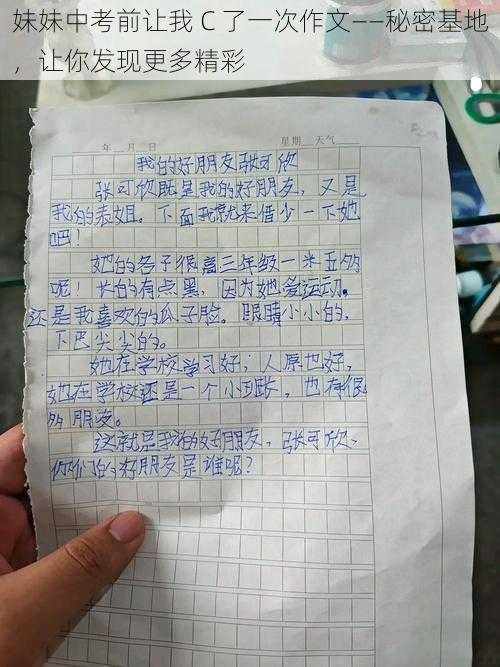 妹妹中考前让我 C 了一次作文——秘密基地
，让你发现更多精彩
年 月 日 星期 天气
我的好朋友张可欣
张可欣既是我的好朋友，又是
我的表姐。下面我就来借少一下她
吧！
她的各子很高三年级一米五多
呢！长的有点黑，因为她爱运动。
还是我喜欢的瓜子脸。眼睛小小的，
下巴尖尖的。
她在学校学习好；人原也好，
她在学校还是一个小班长，也有很
多朋友。
这就是我的好朋友，张可欣、
你们的好朋友是谁呢？